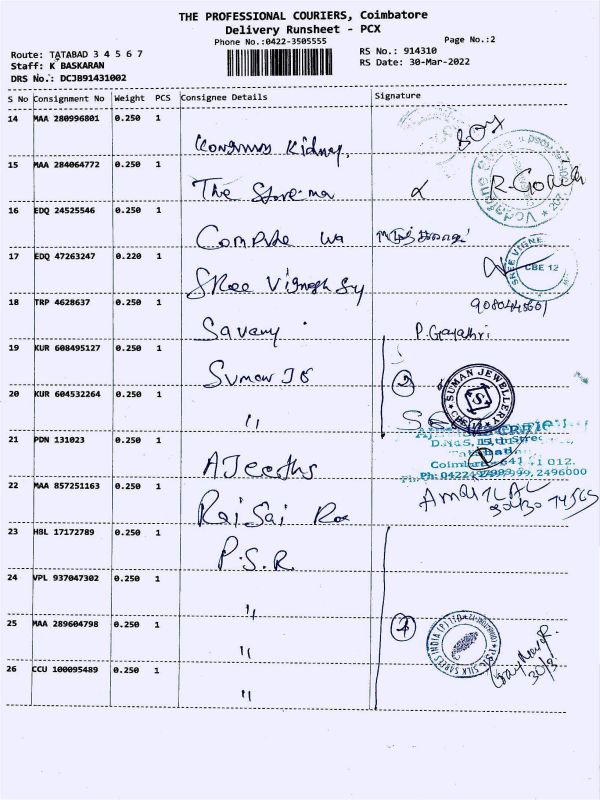 THE PROFESSIONAL COURIERS, Coimbatore
Delivery Runsheet - PCX
Phone No.:0422-3505555
Page No.:2
Route: TATABAD 3 4 5 6 7
Staff: K BASKARAN
DRS No.: DCJB91431002
RS No.: 914310
RS Date: 30-Mar-2022
S No Consignment No Weight PCS Consignee Details Signature
14 MAA 280996801 0.250 1
Kidney,
15 MAA 284064772 0.250 1
The
16 EDQ 24525546 0.250 1
17 EDQ 47263247 0.220 1
Shree Vignesh
SHREE VIGNE
CBE 12
18 TRP 4628637 0.250 1
P. Gayathri
19 KUR 608495127 0.250 1
Suman
2
SUMAN JEWELLERY
S
20 KUR 604532264 0.250 1
"
21 PDN 131023 0.250 1
D.No 5, 15th Stree
Coimbatore - 641 012.
2496000
22 MAA 857251163 0.250 1
Rai Sai
AMRUTLAL
23 HBL 17172789 0.250 1
P.S.R
24 VPL 937047302 0.250 1
"
25 MAA 289604798 0.250 1
"
4
SILK SAREES INDIA (P) LTD
26 CCU 100095489 0.250 1
"
30/3